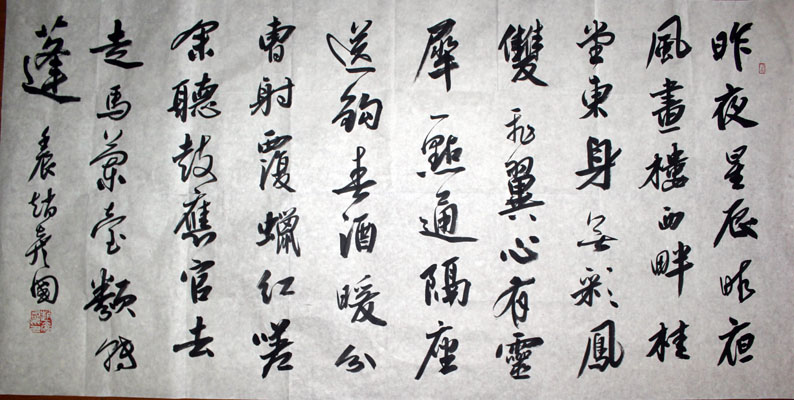 昨夜星辰昨夜
風畫樓西畔桂
堂東身無彩鳳
雙飛翼心有靈
犀一點通隔座
送鈎春酒暖分
曹射覆蠟红嗟
余聽鼓應官去
走馬蘭臺類轉
蓬
國